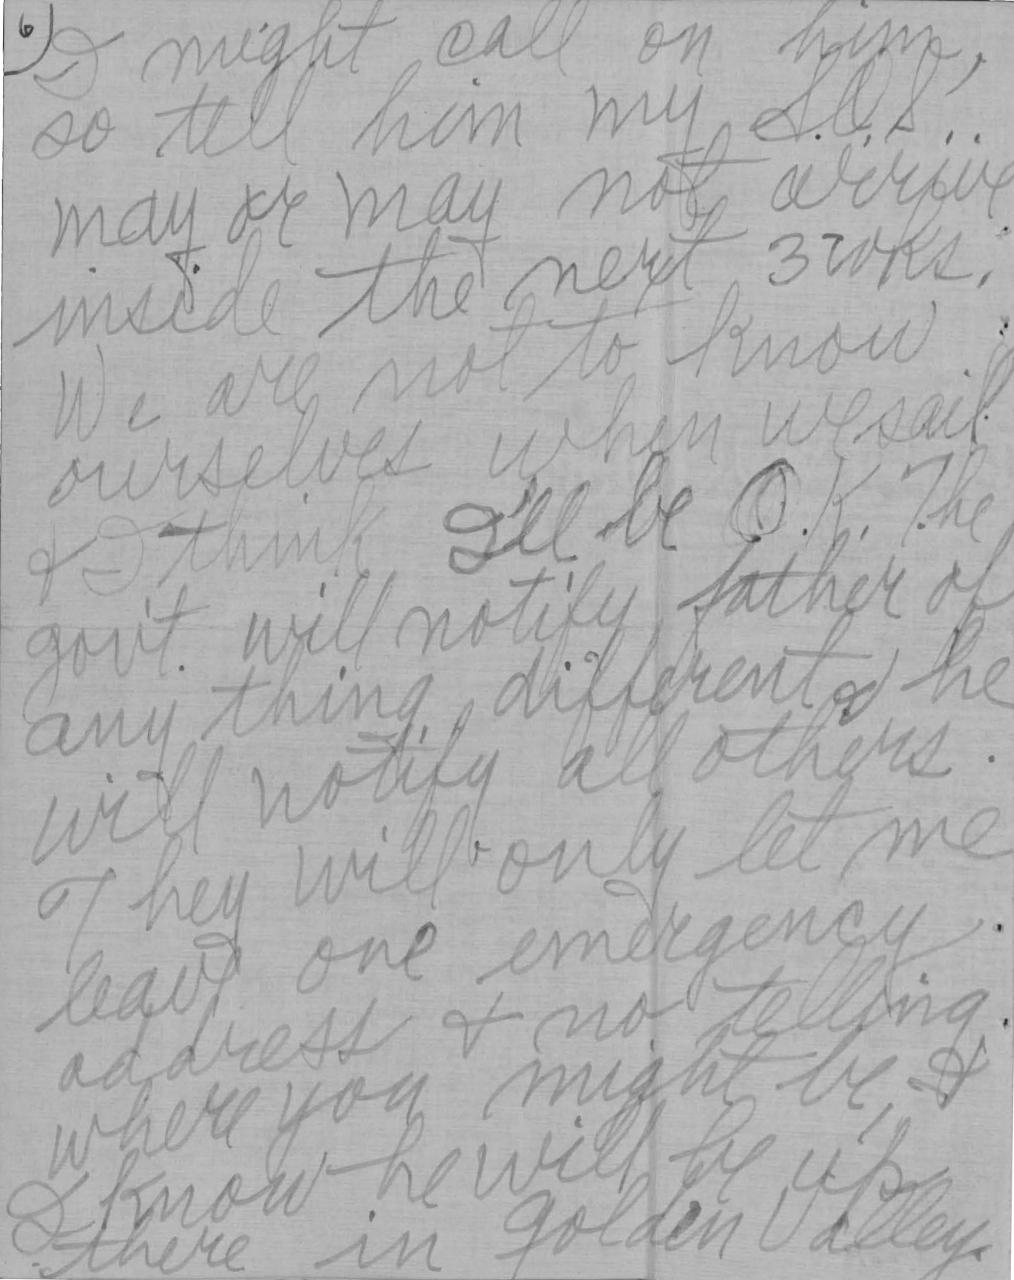 6)
I might call on him,
so tell him my S.O.S.
may or may not arrive
inside the next 3 wks.
We are not to know
ourselves when we sail
& I think I'll be O.K. The
gov't. will notify father of
any thing different & he
will notify all others.
They will only let me
leave one emergency
address & no telling
where you might be, &
I know he will be up
there in Golden Valley.